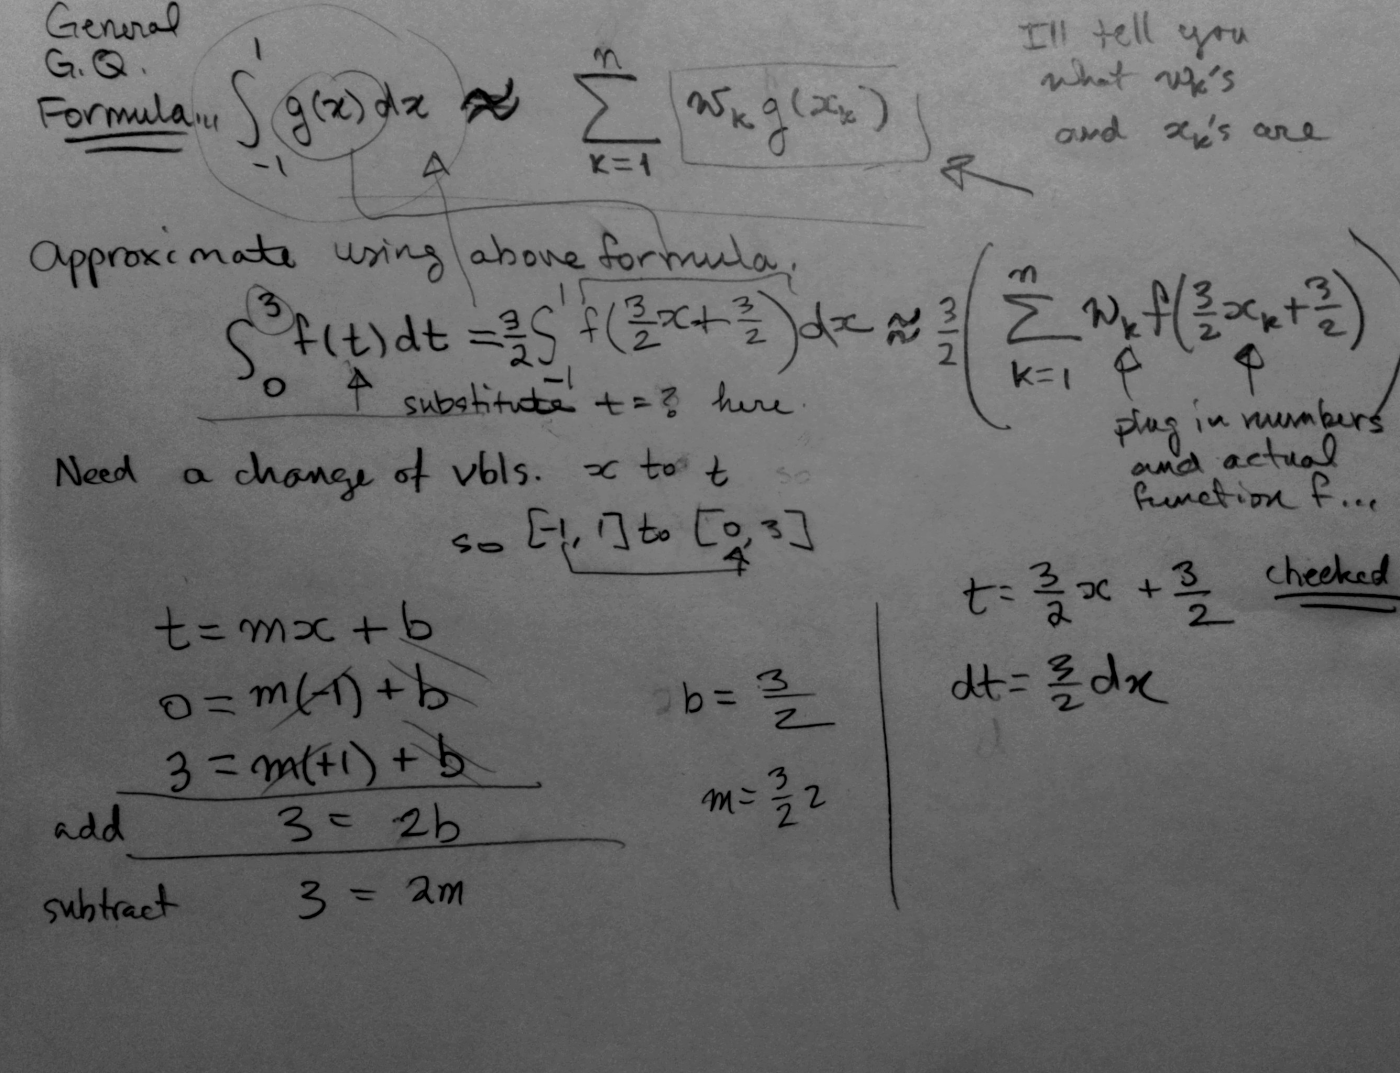 General
G.Q.
Formula...
∫_{-1}^{1} g(x) dx ≈ ∑_{k=1}^{n} w_k g(x_k)
I'll tell you
what w_k's
and x_k's are
Approximate using above formula.
∫_0^3 f(t) dt = 3/2 ∫_{-1}^{1} f(3/2 x + 3/2) dx ≈ 3/2 ( ∑_{k=1}^{n} w_k f(3/2 x_k + 3/2) )
substitute t = ? here.
plug in numbers
and actual
function f...
Need a change of vbls. x to t
so [-1, 1] to [0, 3]
t = mx + b
0 = m(-1) + b
3 = m(+1) + b
add 3 = 2b
subtract 3 = 2m
b = 3/2
m = 3/2 2
t = 3/2 x + 3/2 checked
dt = 3/2 dx